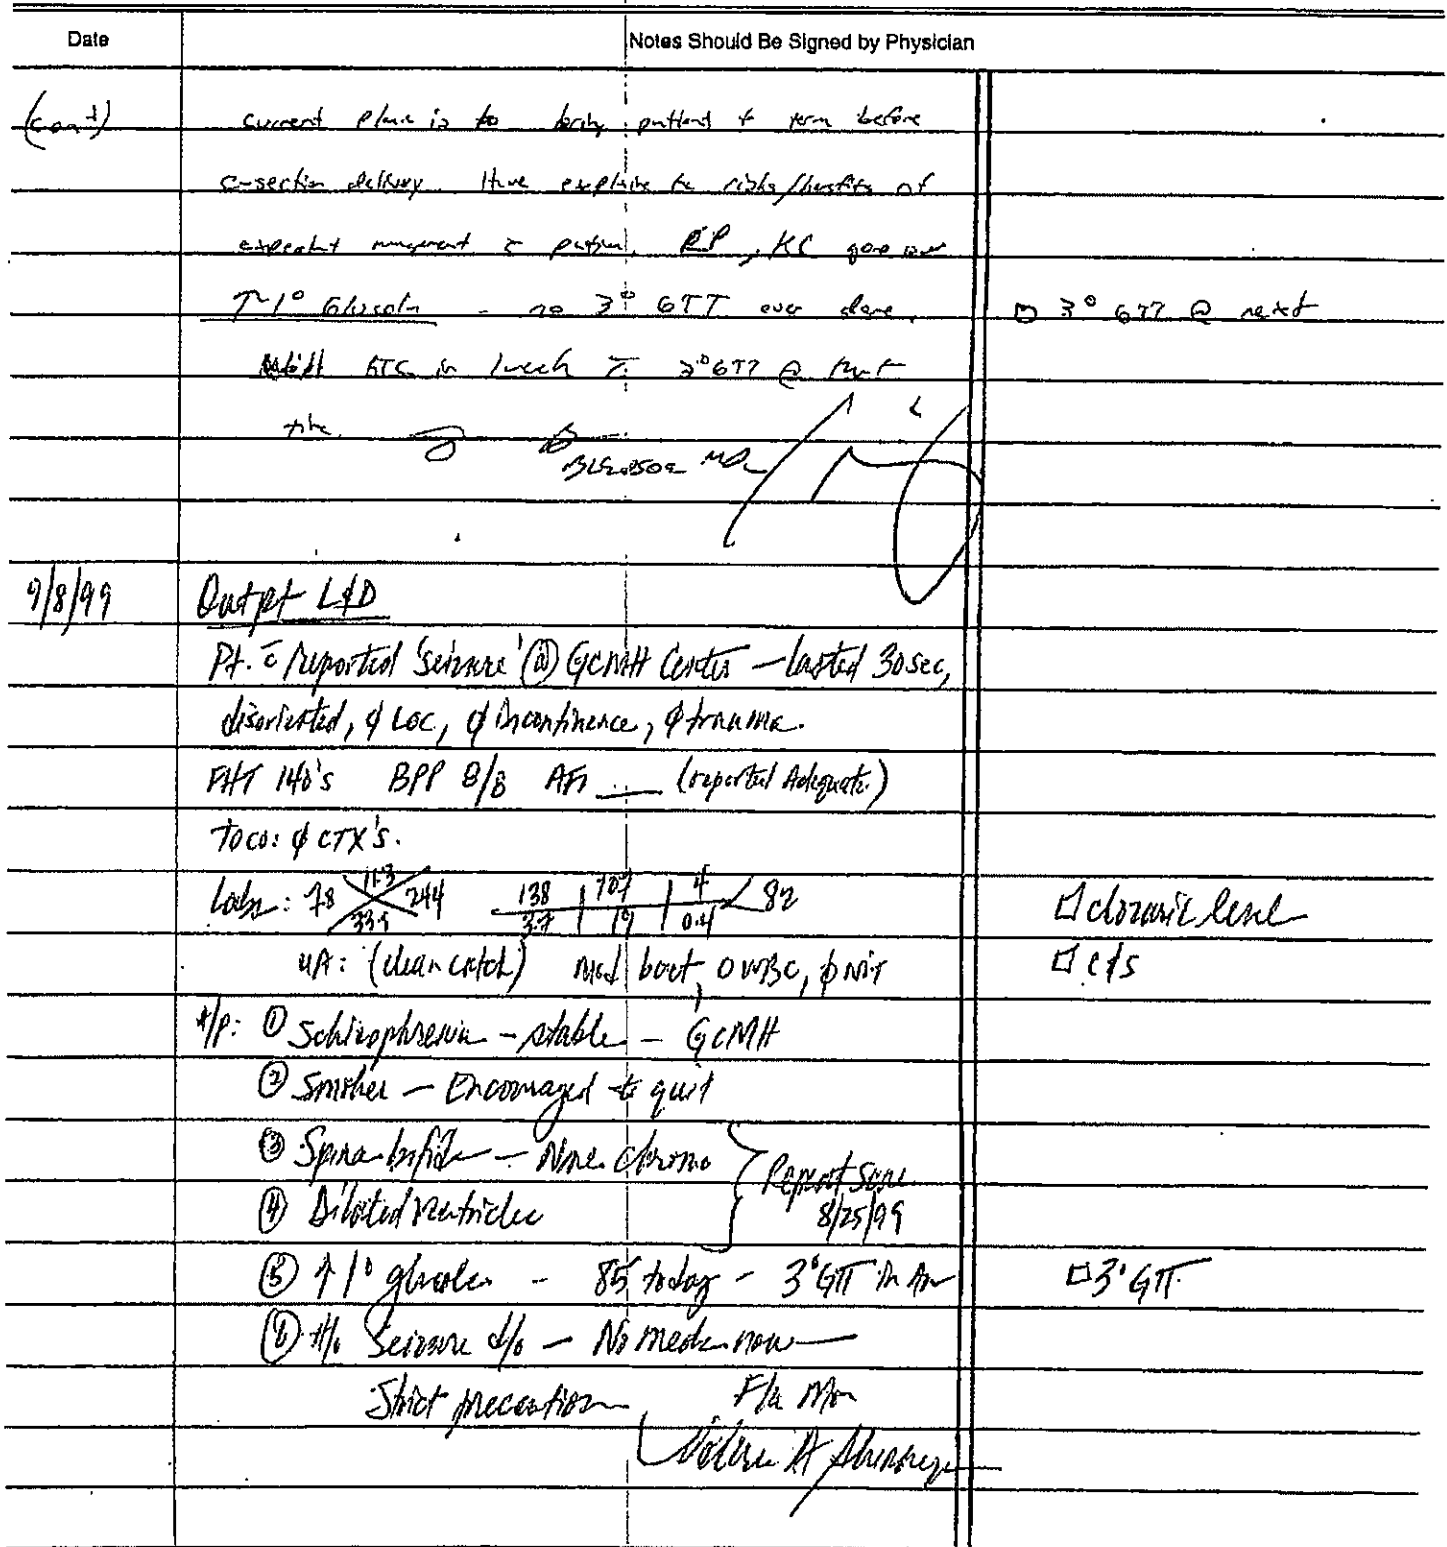 Date Notes Should Be Signed by Physician
(cont) current plan is to patient to term before
c-section delivery. Have explain risks/benefits of
expectant management c̄ RP, KC
↑ 1° Glucola - no 3° GTT ever done, □ 3° GTT @ next
RTC in 1 week c̄ 3° GTT @ that
time. MD
9/8/99 Outpt L&D
Pt. c̄ reported 'seizure' @ GCMH Center - lasted 30 sec,
disoriented, φ LOC, φ incontinence, φ trauma.
FHT 140's BPP 8/8 AFI ___ (reported Adequate)
Toco: φ CTX's.
Labs: 78 11.3 244 138 107 4 82 □ clozaril level
33.9 3.7 19 0.4
UA: (clean catch) mod bact, 0 WBC, φ Nit □ c/s
A/P: ① Schizophrenia - stable - GCMH
② Smoker - Encouraged to quit
③ Spina bifida - chromo Repeat Sono
④ Dilated Ventricles 8/25/99
⑤ ↑ 1° glucola - 85 today - 3° GTT in Am □ 3° GTT
⑥ H/o Seizure d/o - No meds now
Strict precaution F/u Mon